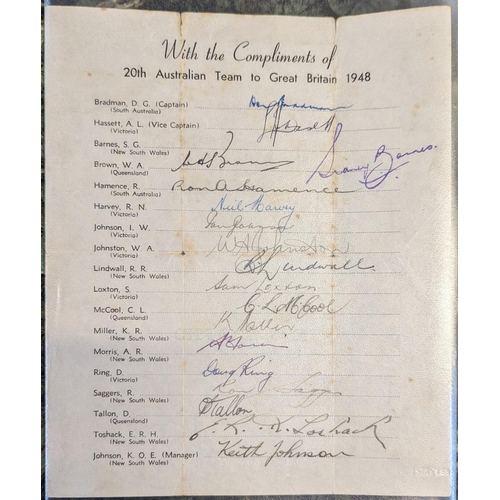 With the Compliments of
20th Australian Team to Great Britain 1948
Bradman, D. G. (Captain) Don Bradman
(South Australia)
Hassett, A. L. (Vice Captain) L Hassett
(Victoria)
Barnes, S. G. Sidney G Barnes.
(New South Wales)
Brown, W. A. W A Brown
(Queensland)
Hamence, R. Ron A Hamence
(South Australia)
Harvey, R. N. Neil Harvey
(Victoria)
Johnson, I. W. Ian Johnson
(Victoria)
Johnston, W. A. W A Johnston
(Victoria)
Lindwall, R. R. R R Lindwall.
(New South Wales)
Loxton, S. Sam Loxton
(Victoria)
McCool, C. L. C. L. McCool
(Queensland)
Miller, K. R. K Miller
(New South Wales)
Morris, A. R. A Morris
(New South Wales)
Ring, D. Doug Ring
(Victoria)
Saggers, R. Ron Saggers
(New South Wales)
Tallon, D. D Tallon
(Queensland)
Toshack, E. R. H. E. R. H. Toshack
(New South Wales)
Johnson, K. O. E. (Manager) Keith Johnson
(New South Wales)